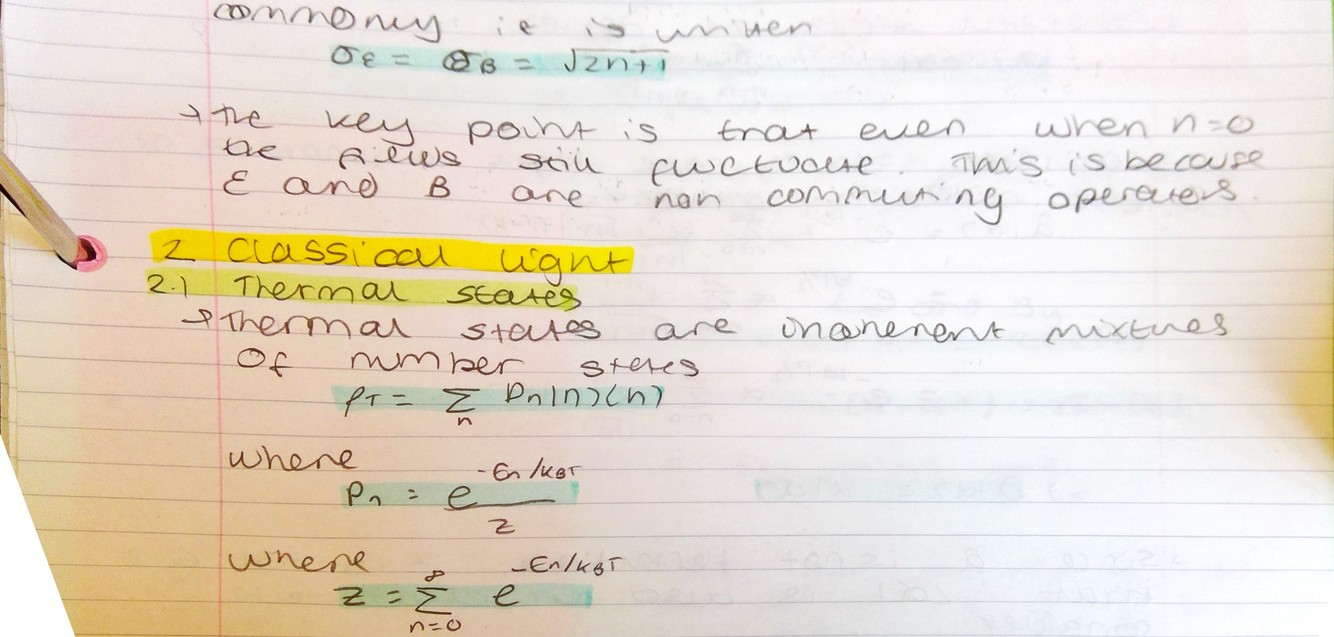 commonly it is written
σε = σB = √2n+1
→ The key point is that even when n=0
the fields still fluctuate. This is because
ε and B are non commuting operators.
2 Classical light
2.1 Thermal states
→ Thermal states are incoherent mixtures
Of number states
ρT = Σn Pn|n⟩⟨n|
where
Pn = e^-En/kBT / Z
where
Z = Σn=0^∞ e^-En/kBT